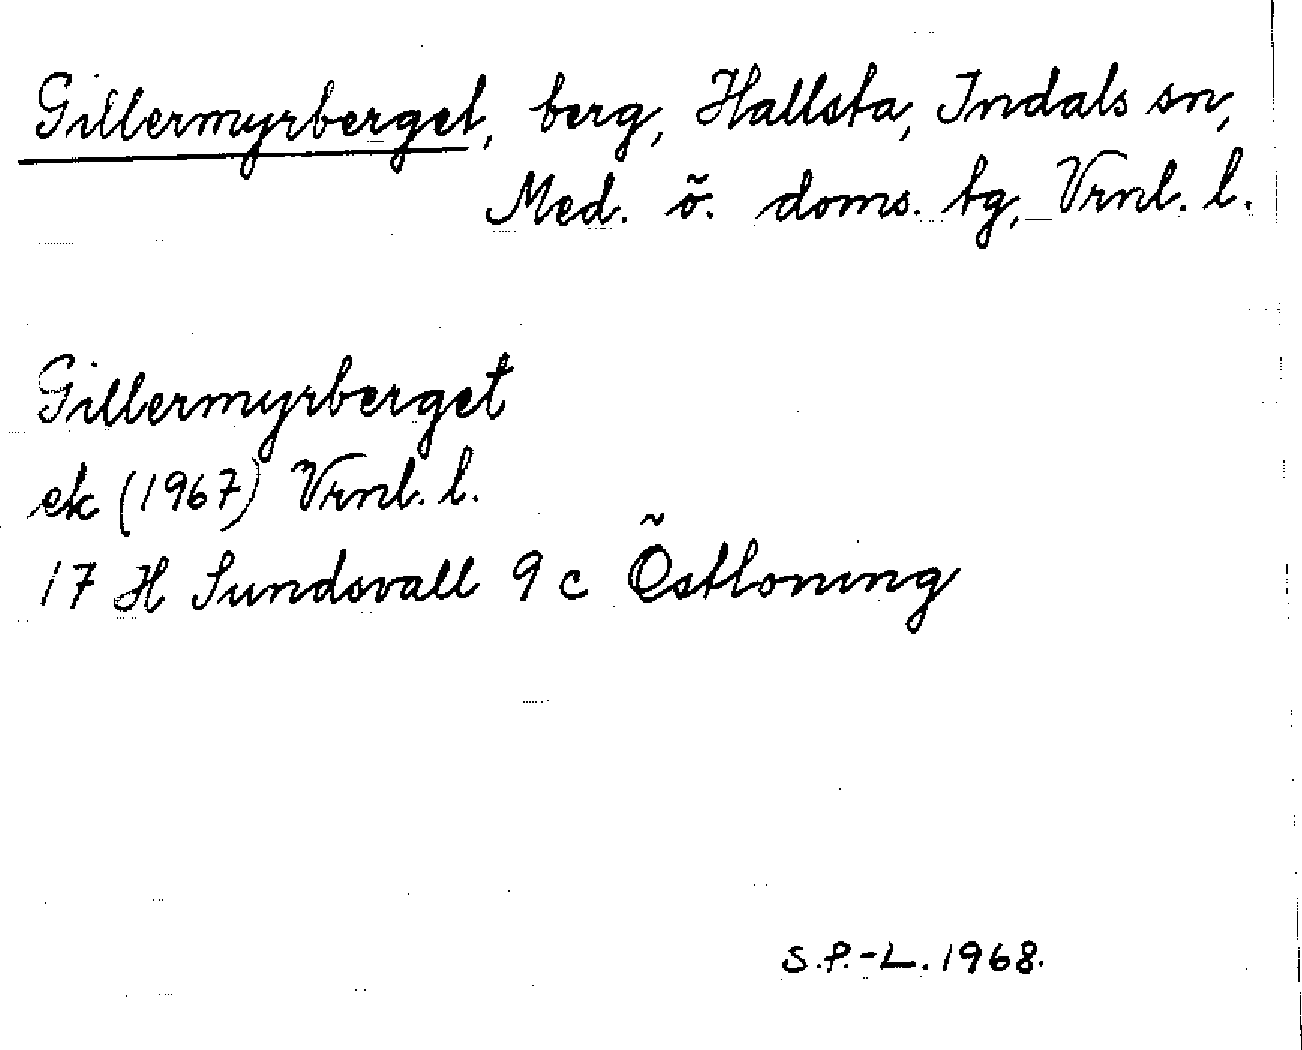 Gillermyrberget, berg, Hallsta, Indals sn,
Med. ö. doms. tg, Vrnl. l.
Gillermyrberget
ek (1967) Vrnl. l.
17 H Sundsvall 9 c Östloning
S.P.-L. 1968.